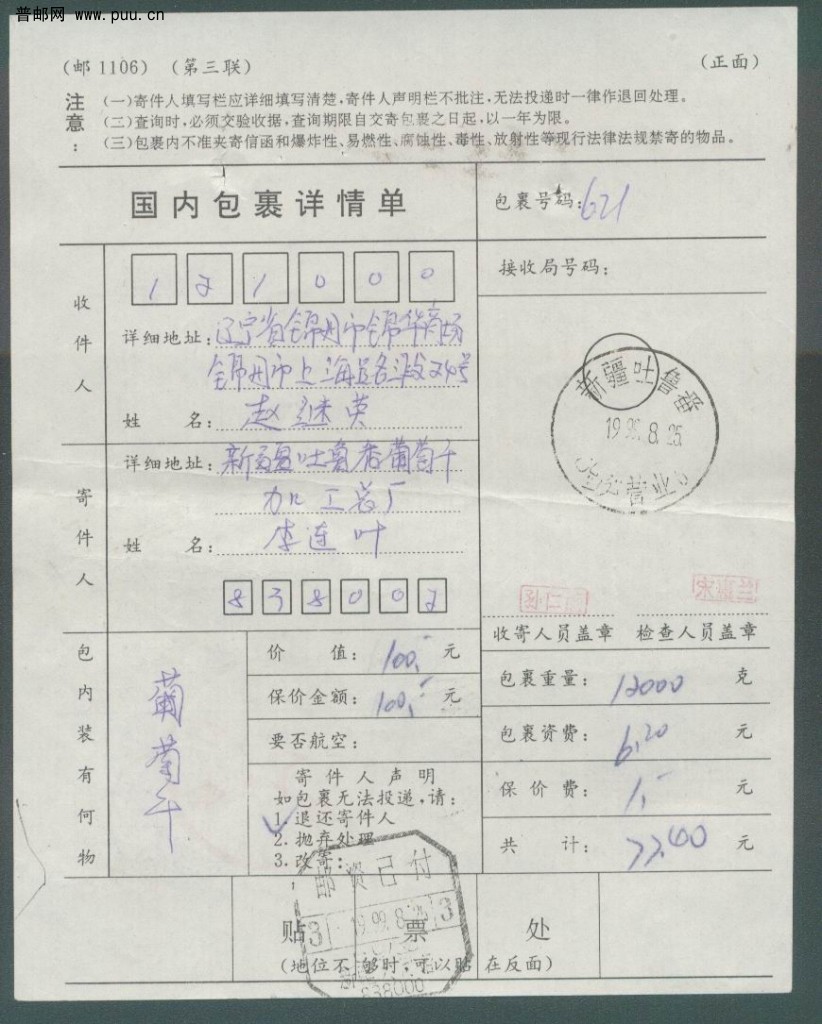 普邮网 www.puu.cn
(邮1106) (第三联)
(正面)
注意:
(一)寄件人填写栏应详细填写清楚,寄件人声明栏不批注,无法投递时一律作退回处理。
(二)查询时,必须交验收据,查询期限自交寄包裹之日起,以一年为限。
(三)包裹内不准夹寄信函和爆炸性、易燃性、腐蚀性、毒性、放射性等现行法律法规禁寄的物品。
国内包裹详情单
包裹号码:621
接收局号码:
收件人
121000
详细地址:辽宁省锦州市锦华商场
锦州市上海路
姓 名:赵继英
寄件人
详细地址:新疆吐鲁番葡萄干
加工总厂
姓 名:李连叶
838002
新疆吐鲁番
1999.8.25
营业
孙仁
宋
收寄人员盖章 检查人员盖章
包内装有何物
葡萄干
价 值:100.- 元
保价金额:100.- 元
要否航空:
寄件人声明
如包裹无法投递,请:
1.退还寄件人
2.抛弃处理
3.改寄:
包裹重量:12000 克
包裹资费: 元
保价费:1.- 元
共 计: 元
邮资已付
3 1999.8.25 3
838000
贴 票 处
(地位不够时,可以贴在反面)